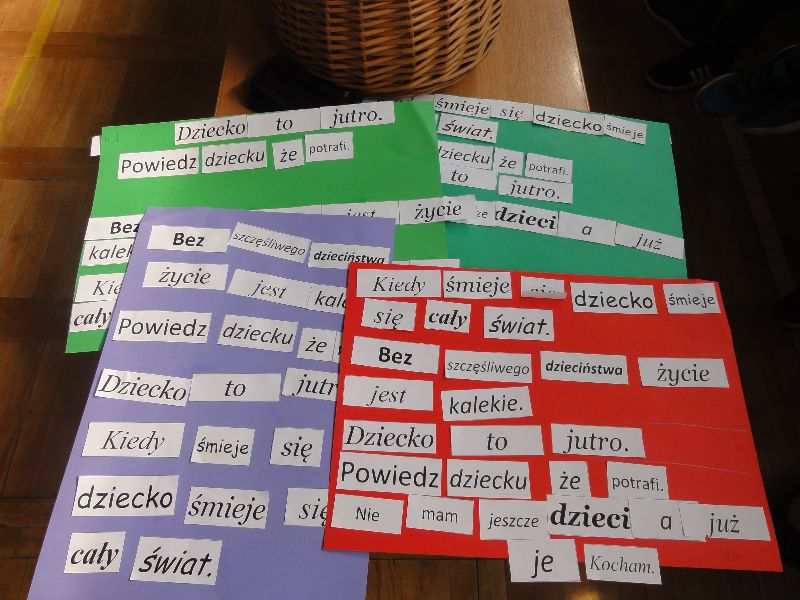 Dziecko to jutro.
Powiedz dziecku że potrafi.
Bez jest życie
kalek
Ki
cały
śmieje się dziecko śmieje
świat.
dziecku że potrafi.
to jutro.
że dzieci a już
Bez szczęśliwego dzieciństwa
życie jest kale
Powiedz dziecku że
Dziecko to jutr
Kiedy śmieje się
dziecko śmieje się
cały świat.
Kiedy śmieje się dziecko śmieje
się cały świat.
Bez szczęśliwego dzieciństwa życie
jest kalekie.
Dziecko to jutro.
Powiedz dziecku że potrafi.
Nie mam jeszcze dzieci a już
je Kocham.